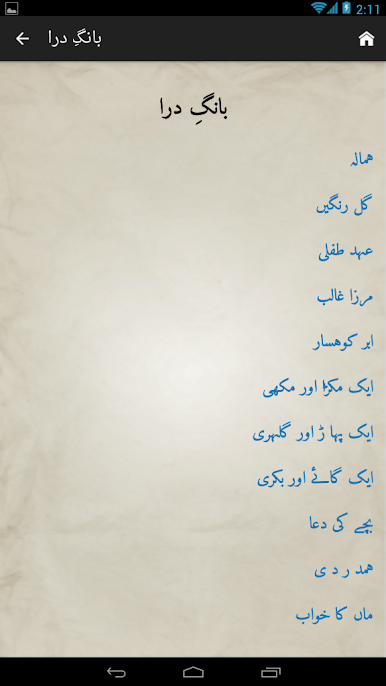 2:11
بانگِ درا
بانگِ درا
ہمالہ
گل رنگیں
عہد طفلی
مرزا غالب
ابر کوہسار
ایک مکڑا اور مکھی
ایک پہا ڑ اور گلہری
ایک گائے اور بکری
بچے کی دعا
ہمد ر د ی
ماں کا خواب